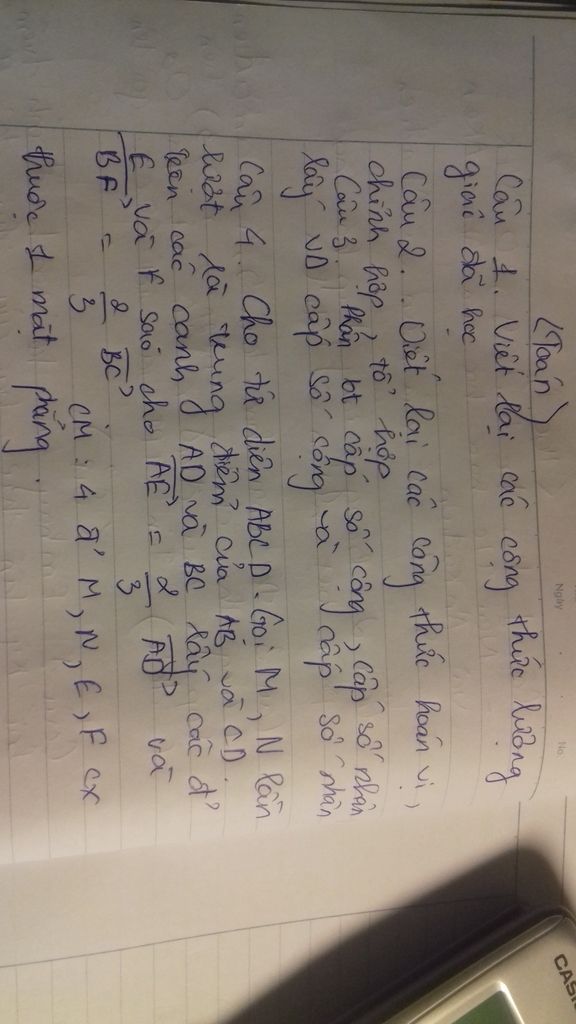 (Toán)
Câu 1. Viết lại các công thức lượng
giác đã học
Câu 2. Viết lại các công thức hoán vị,
chỉnh hợp, tổ hợp
Câu 3. Phân bt cấp số cộng, cấp số nhân
lấy VD cấp số cộng và cấp số nhân
Câu 4. Cho tứ diện ABCD. Gọi M, N lần
lượt là trung điểm của AB và CD.
trên các cạnh AD và BC lấy các đ'
E và F sao cho AE = 2/3 AD và
BF = 2/3 BC CM: 4 đ' M, N, E, F cx
thuộc 1 mặt phẳng.
Ngày
No.
CASI